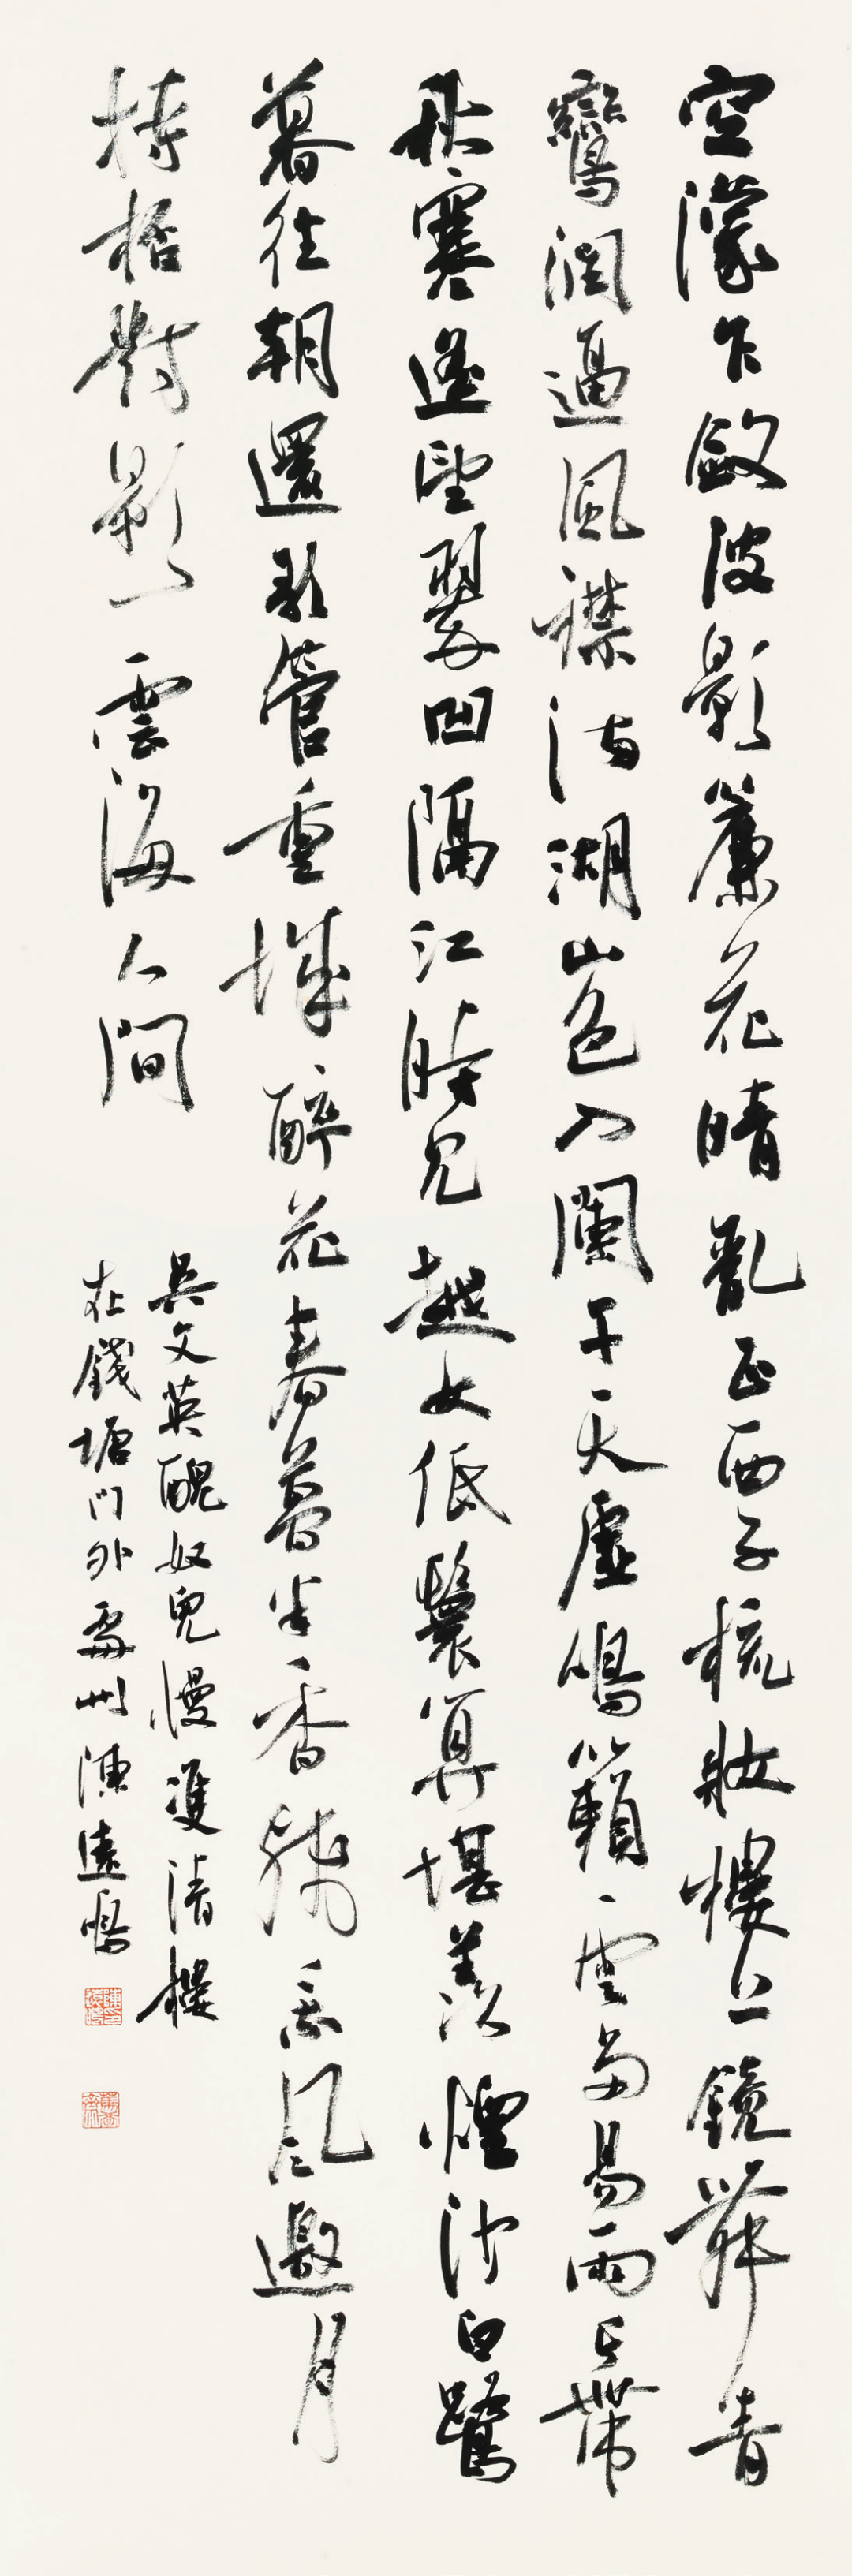 空濛乍斂波影簾花晴亂正西子梳妝樓上鏡舞青
鸞潤逼風襟滿湖山色入闌干天虛鳴籟雲多易雨長帶
秋寒遙望翠凹隔江時見越女低鬟算堪羨煙沙白鷺
暮往朝還歌管重城醉花春夢半香殘乘風邀月
持桮對影雲海人間
吳文英醜奴兒慢雙清樓
在錢塘門外州陳遠